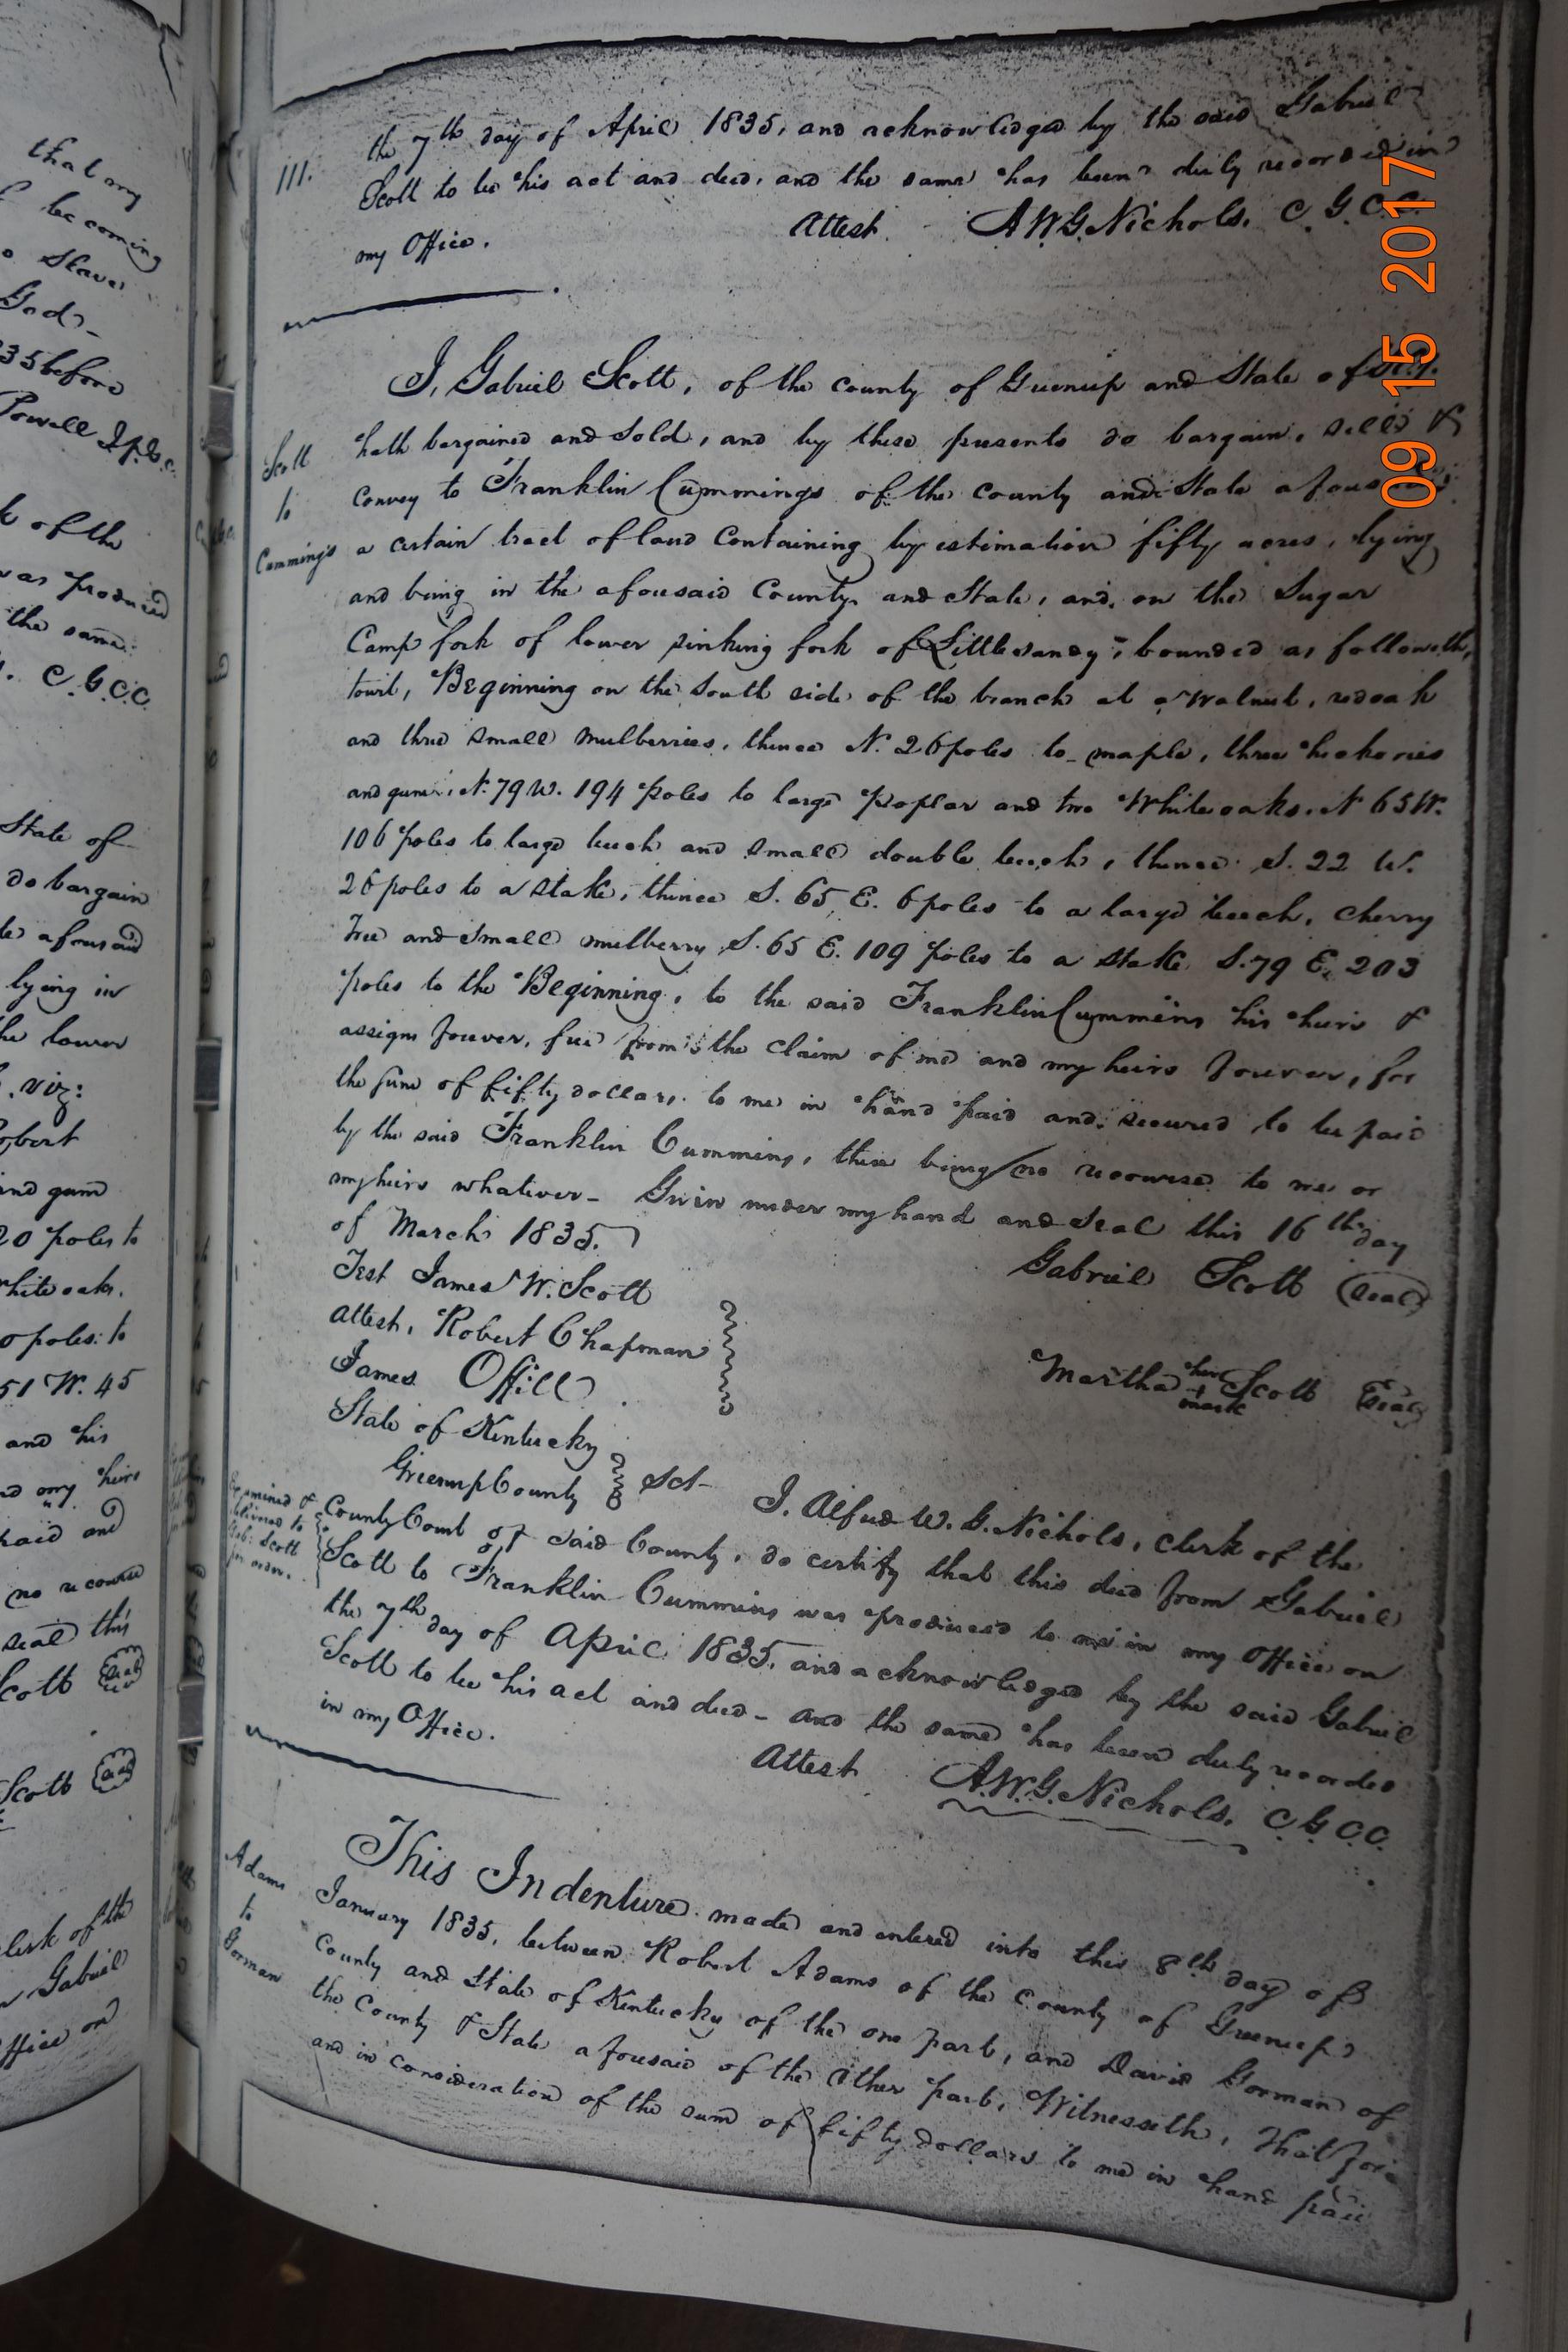 that my
becoming
Slave
God
35 before
Powell J.P.G.C.
of the
was produced
the same
C.G.C.C.
State of
do bargain
aforesaid
lying in
the lower
viz:
Robert
and gum
20 poles to
white oaks.
poles to
51 W. 45
and his
my heirs
paid and
no recourse
seal this
Scott Seal
Scott Seal
Clerk of the
Gabriel
Office on
111.
the 7th day of April 1835, and acknowledged by the said Gabriel
Scott to be his act and deed, and the same has been duly recorded in
my Office.
Attest A.W.G. Nichols. C.G.C.C.
I, Gabriel Scott, of the county of Greenup and State of Ky.
Scott
to
Cummings
hath bargained and sold, and by these presents do bargain, sell &
convey to Franklin Cummings of the county and State aforesaid
a certain tract of land containing by estimation fifty acres, lying
and being in the aforesaid County and State, and, on the Sugar
Camp fork of lower sinking fork of Little sandy, bounded as followeth,
towit, Beginning on the South side of the branch at a Walnut, redoak
and three small mulberries, thence N. 26 poles to maple, three hickories
and gum, N. 79 W. 194 poles to large poplar and two White oaks, N 65 W.
106 poles to large beech and small double beech, thence S. 22 W.
26 poles to a stake, thence S. 65 E. 6 poles to a large beech, cherry
Tree and small mulberry S. 65 E. 109 poles to a stake S. 79 E. 203
poles to the Beginning, to the said Franklin Cummins his heirs &
assigns forever, free from the claim of me and my heirs forever, for
the sum of fifty dollars to me in hand paid and secured to be paid
by the said Franklin Cummins, there being no recourse to me or
my heirs whatever - Given under my hand and Seal this 16th day
of March 1835.
Gabriel Scott (Seal)
Test James W. Scott
Attest, Robert Chapman
Martha her + mark Scott Seal
James Offill
State of Kentucky
Greenup County Sct-
Examined &
delivered to
Gab: Scott
for order.
I. Alfred W. G. Nichols, clerk of the
County Court of said County, do certify that this deed from Gabriel
Scott to Franklin Cummins was produced to me in my Office on
the 7th day of April 1835, and acknowledged by the said Gabriel
Scott to be his act and deed - and the same has been duly recorded
in my Office.
Attest A.W.G. Nichols. C.G.C.C.
Adams
to
Gorman
This Indenture made and entered into this 8th day of
January 1835, between Robert Adams of the county of Greenup
County and State of Kentucky of the one part, and David Gorman of
the County & State aforesaid of the other part, Witnesseth, That for
and in consideration of the sum of fifty dollars to me in hand paid
09 15 2017